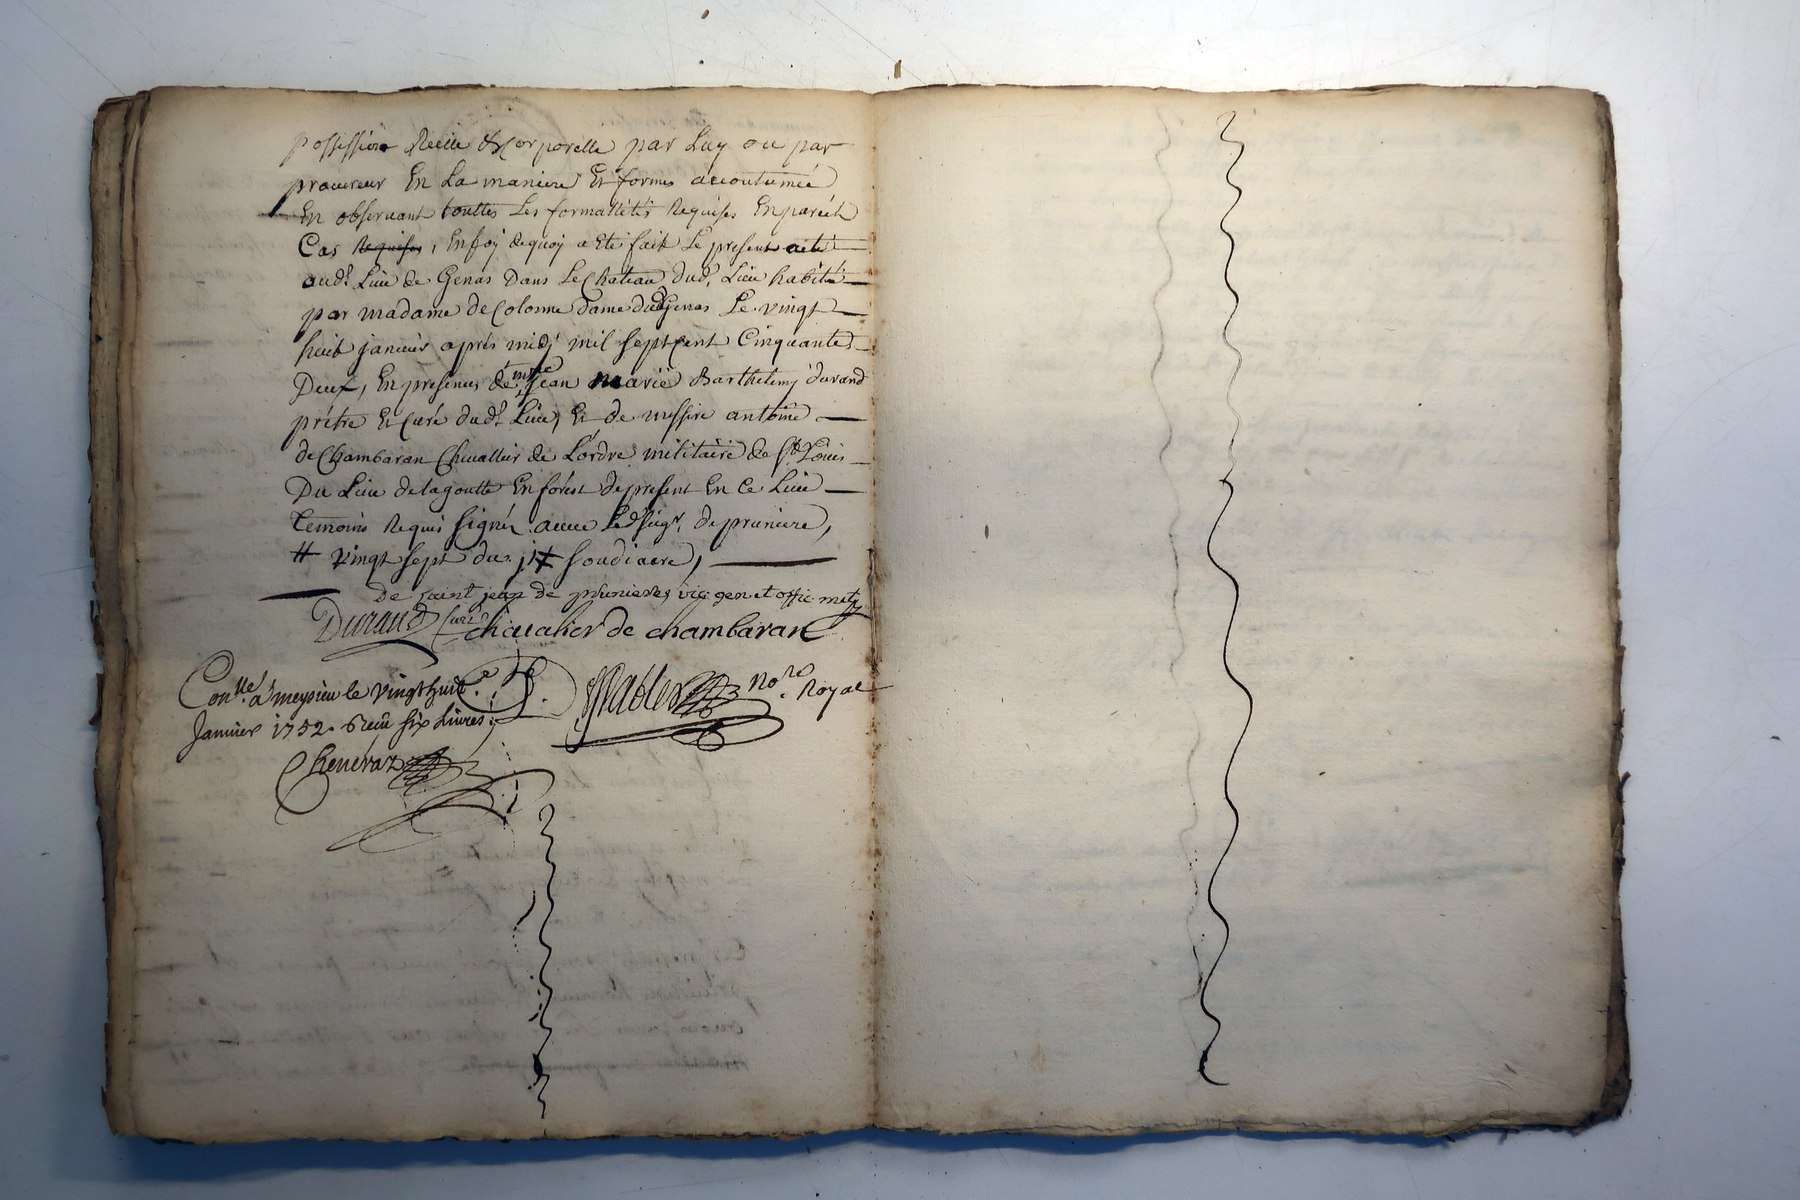 possession Reelle & corporelle par Luy ou par
procureur En La maniere Et formes accoutumée
En observant touttes Les formallités Requises En pareil
Cas Requises, En foy de quoy a eté fait Le present acte
aud.t Lieu de Genas Dans Le Chateau dud. Lieu habité
par madame de Colonne Dame dud Genas Le vingt
huit janvier aprés midy mil sept cent Cinquante
Deux, En presence de mre Jean marie Barthelemy durand
prétre Et curé dud.t Lieu, Et de messire antoine
de Chambaran Chevallier de L'ordre militaire de St Louis
Du Lieu de lagoutte En forest de present En Ce Lieu
temoins Requis signés avec Led seigr. de pruniere,
# vingt sept du. soudiacre,
de saint jean de prunieres, vic gen et offic metr
Durand curé chevalier de chambaran
Conlle. a meysieu le vingt huit
Janvier 1752. Recu six livres
nore. Royal
Cheneraz